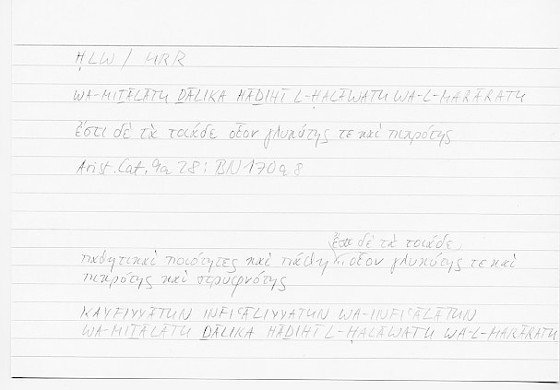 ḤLW / MRR
WA-MIṮĀLATU ḎĀLIKA HĀḎIHĪ L-ḤALĀWATU WA-L-MARĀRATU
ἔστι δὲ τὰ τοιάδε οἷον γλυκύτης τε καὶ πικρότης
Arist. Cat. 9a 28 : BN 170a8
ἔστι δὲ τὰ τοιάδε
παθητικαὶ ποιότητες καὶ πάθη οἷον γλυκύτης τε καὶ
πικρότης καὶ στρυφνότης
KAYFIYYATUN INFIʿĀLIYYATUN WA-INFIʿĀLĀTUN
WA-MIṮĀLATU ḎĀLIKA HĀḎIHĪ L-ḤALĀWATU WA-L-MARĀRATU